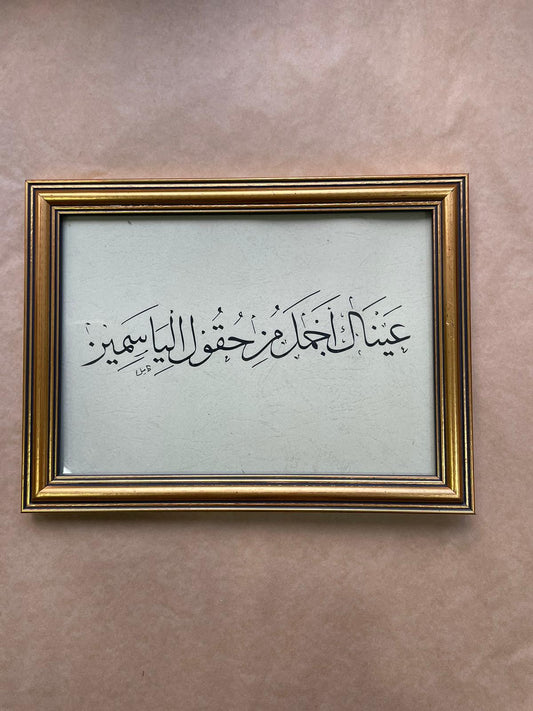 عيناك أجمل من حقول الياسمين